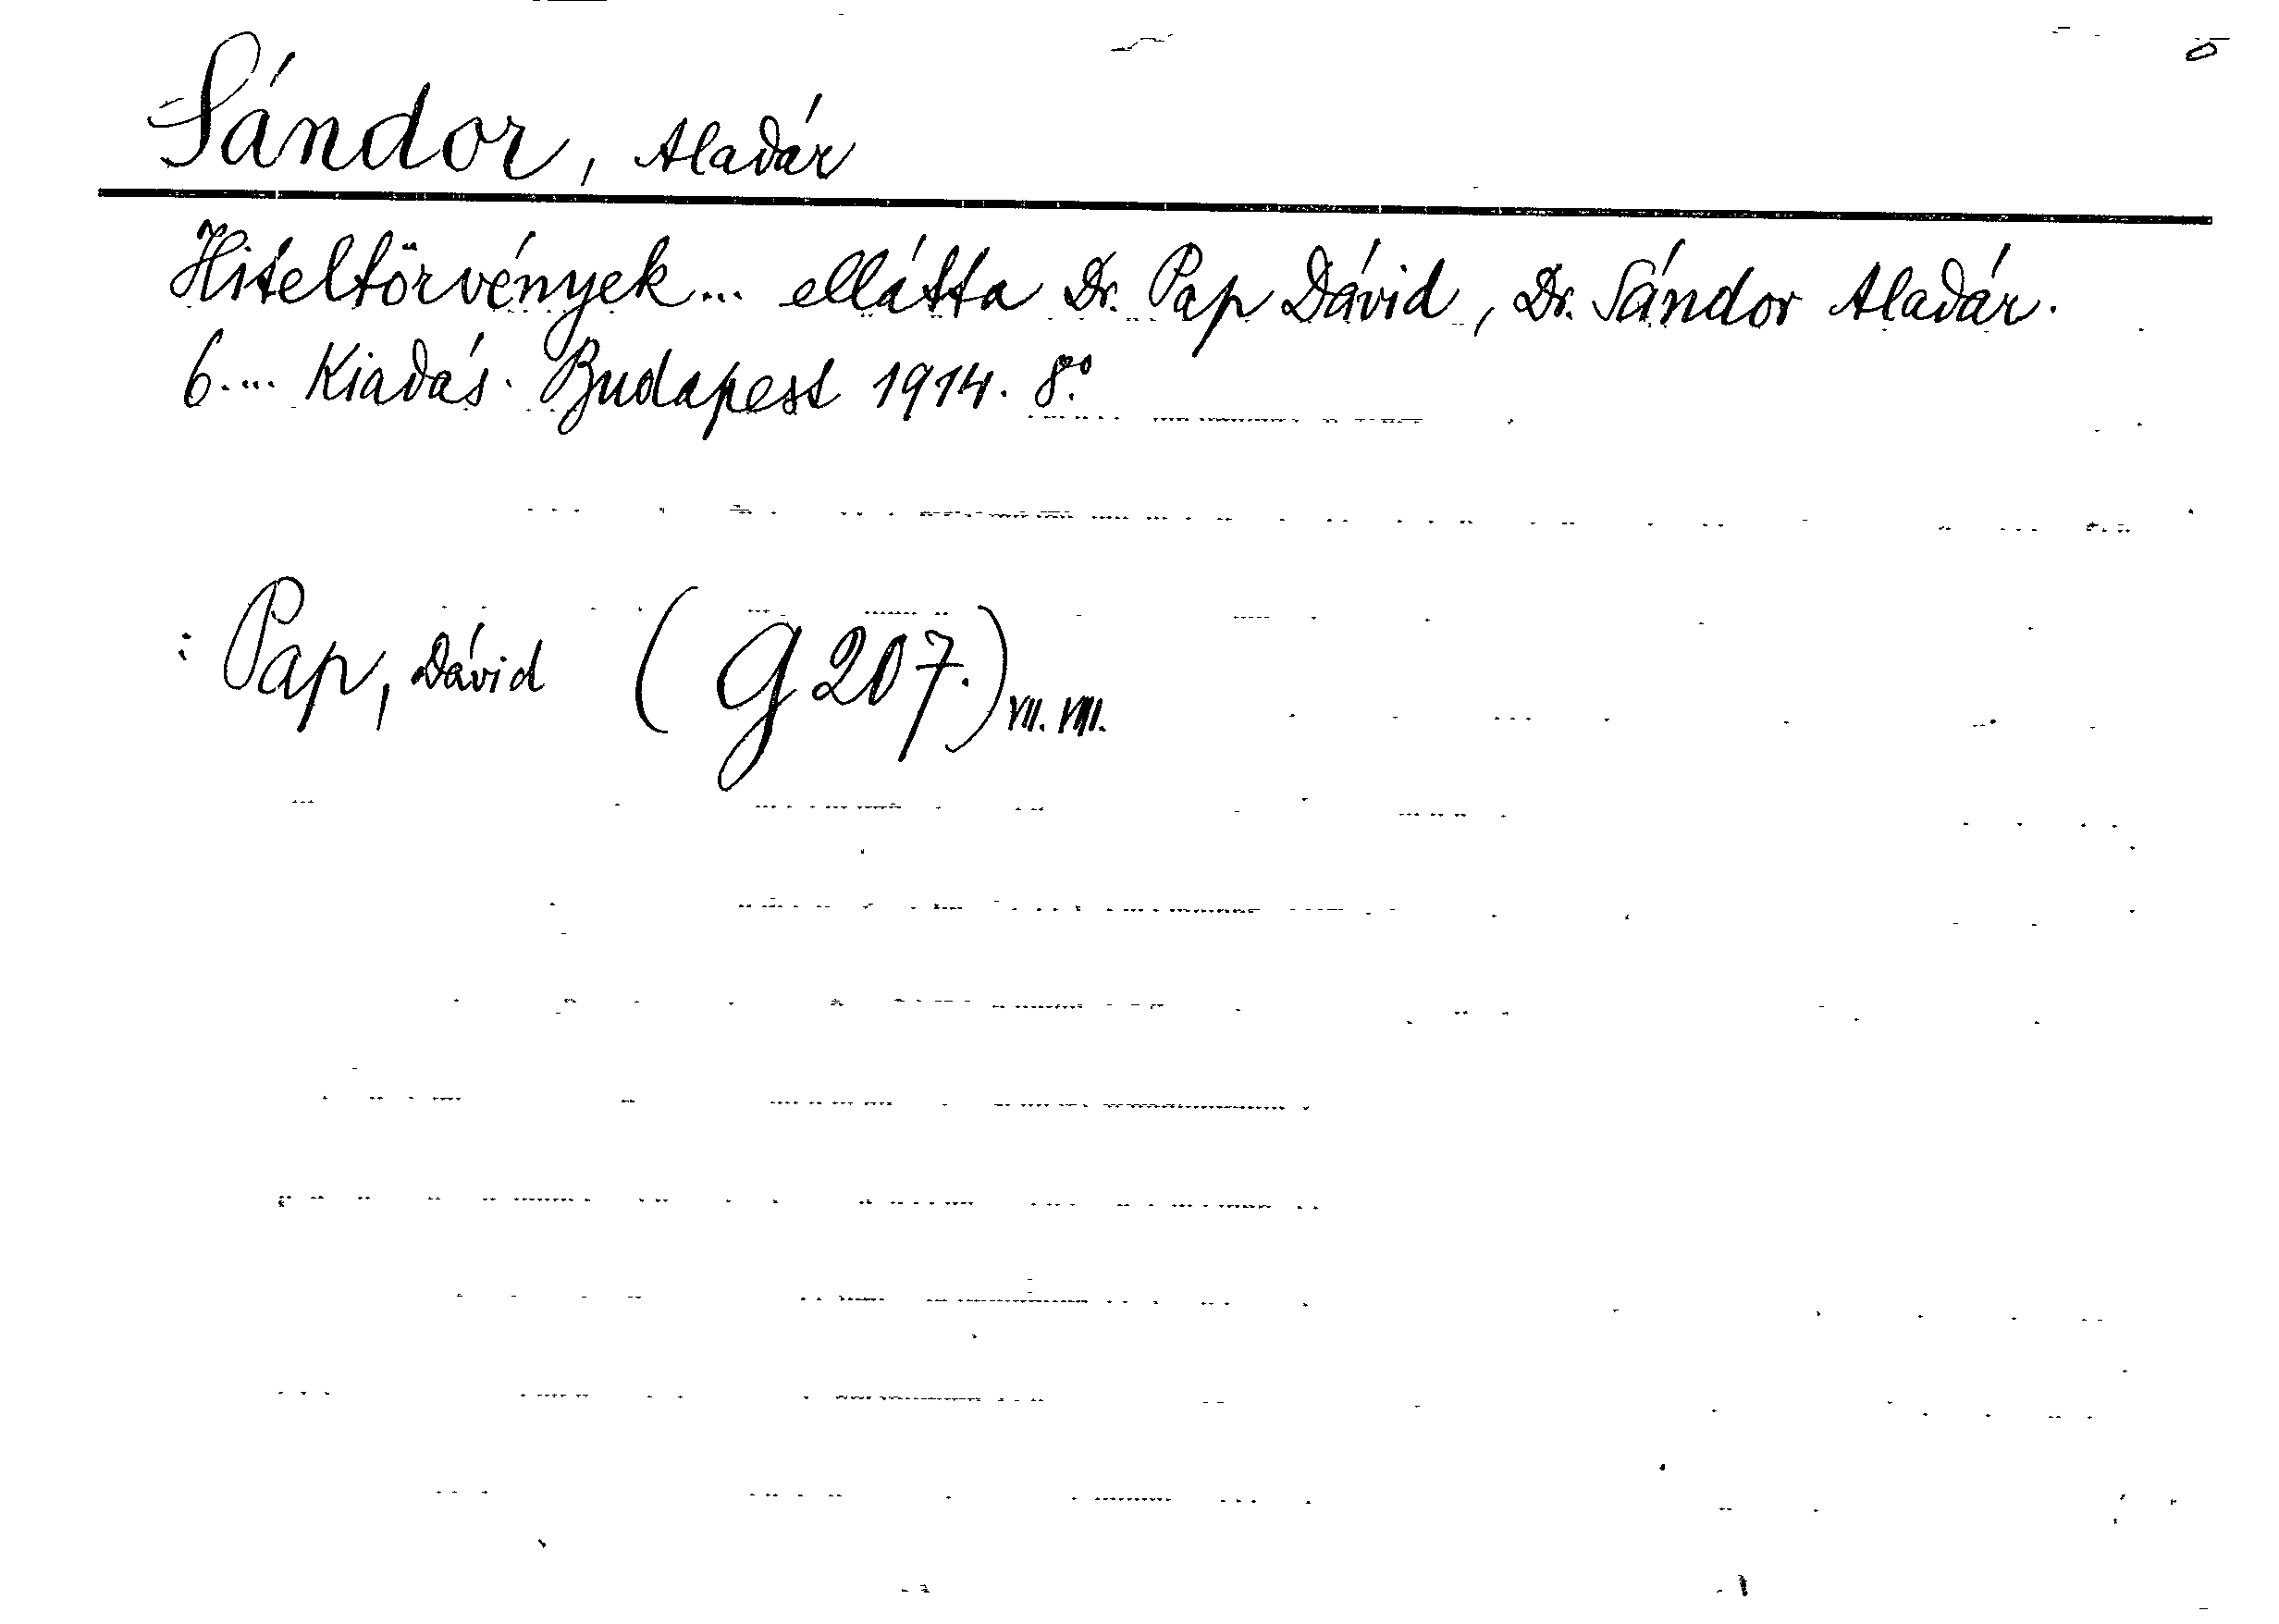 Sándor, Aladár
Hiteltörvények... ellátta Dr. Pap Dávid, Dr. Sándor Aladár.
6.... Kiadás. Budapest 1914. 8.º
: Pap, Dávid (G 207.) VII. VIII.